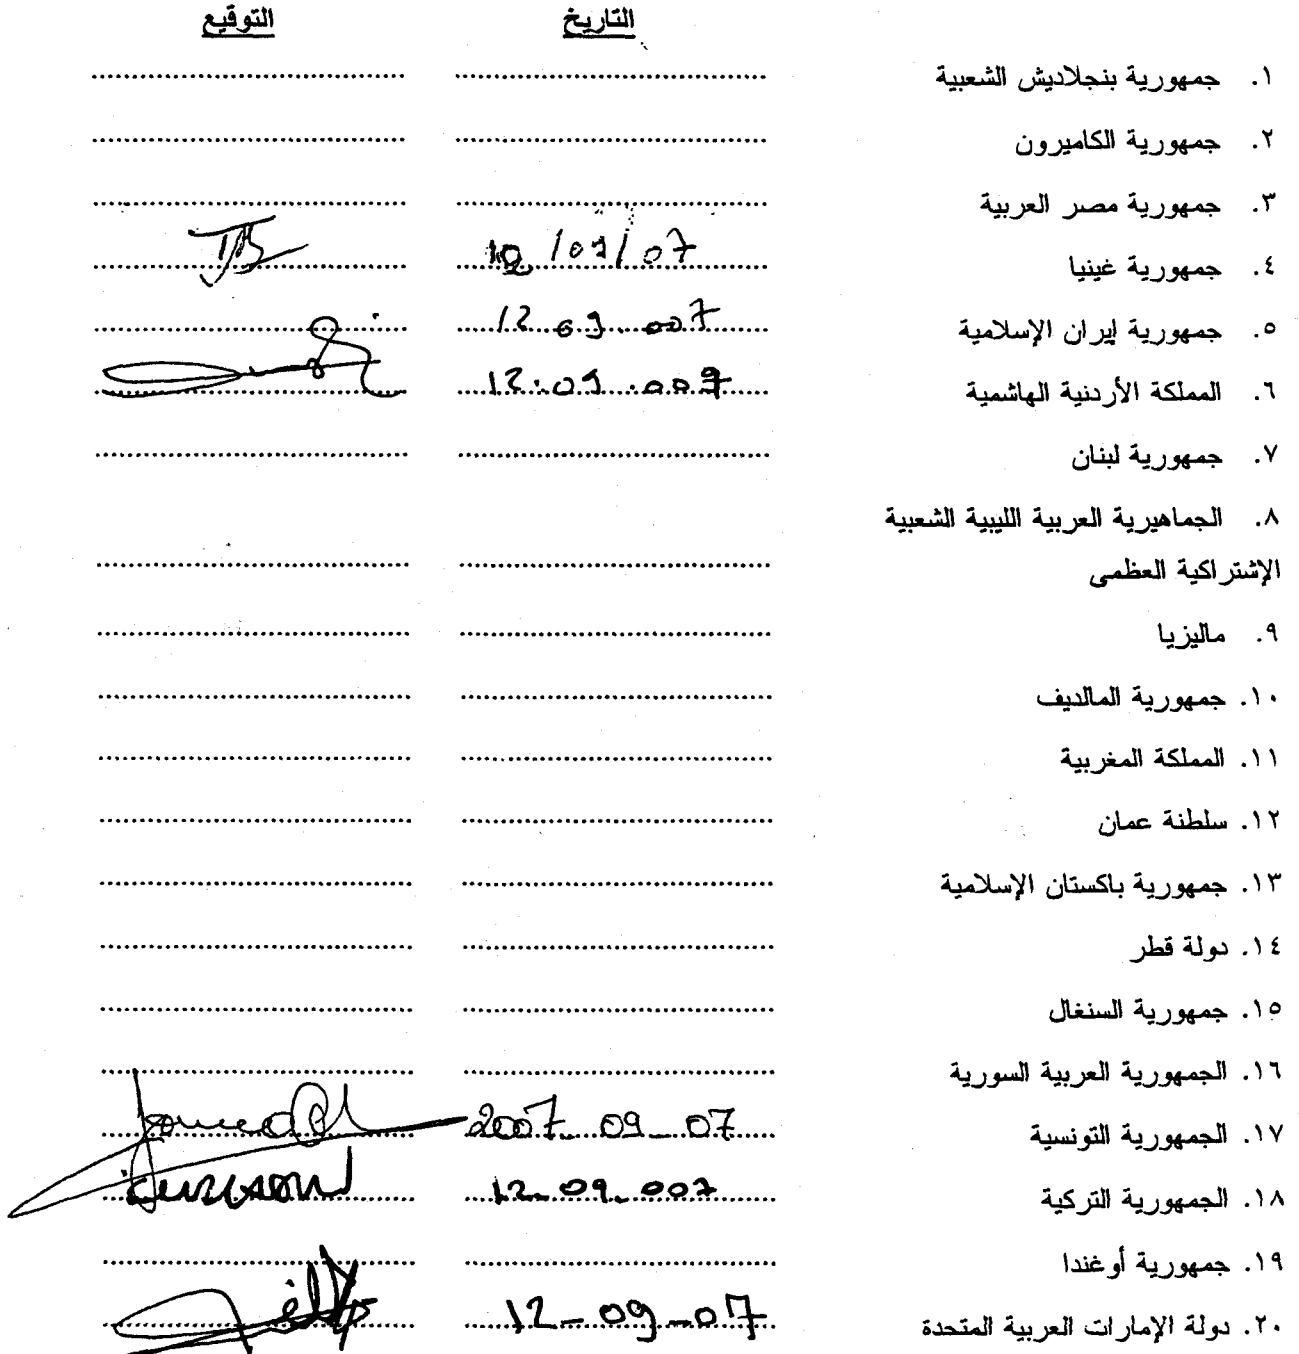 التاريخ التوقيع
١. جمهورية بنجلاديش الشعبية
٢. جمهورية الكاميرون
٣. جمهورية مصر العربية
٤. جمهورية غينيا /09/07
٥. جمهورية إيران الإسلامية 12.09.007
٦. المملكة الأردنية الهاشمية 12.09.007
٧. جمهورية لبنان
٨. الجماهيرية العربية الليبية الشعبية
الإشتراكية العظمى
٩. ماليزيا
١٠. جمهورية المالديف
١١. المملكة المغربية
١٢. سلطنة عمان
١٣. جمهورية باكستان الإسلامية
١٤. دولة قطر
١٥. جمهورية السنغال
١٦. الجمهورية العربية السورية
١٧. الجمهورية التونسية 2007_09_07
١٨. الجمهورية التركية 12_09_007
١٩. جمهورية أوغندا
٢٠. دولة الإمارات العربية المتحدة 12_09_07